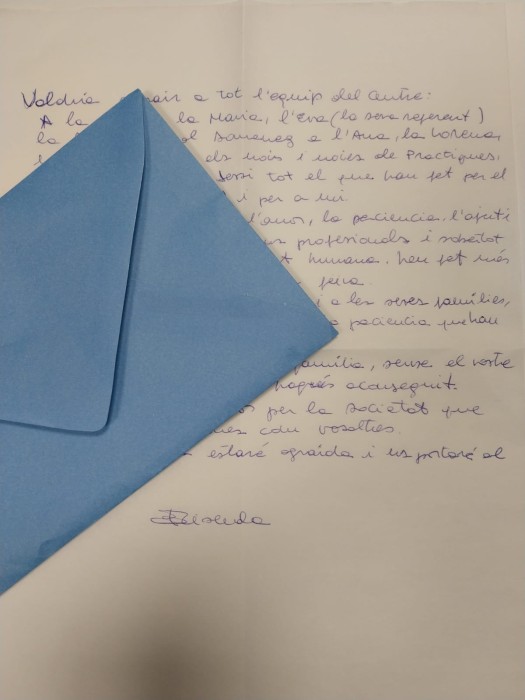 Voldria a tot l'equip del centre:
A la la Maria, l'Eva (la seva referent)
la a l'Ana, la Lorena,
els nois i noies de Practiques.
tot el que han fet per el
i per a mi.
l'amor, la paciencia, l'ajuti
profesionals i sobretot
humana. heu fet més
feina.
i a les seves families,
paciencia que hau
familia, sense el vostre
hagués aconseguit.
per la societat que
com vosaltres.
estaré agraida i us portaré al